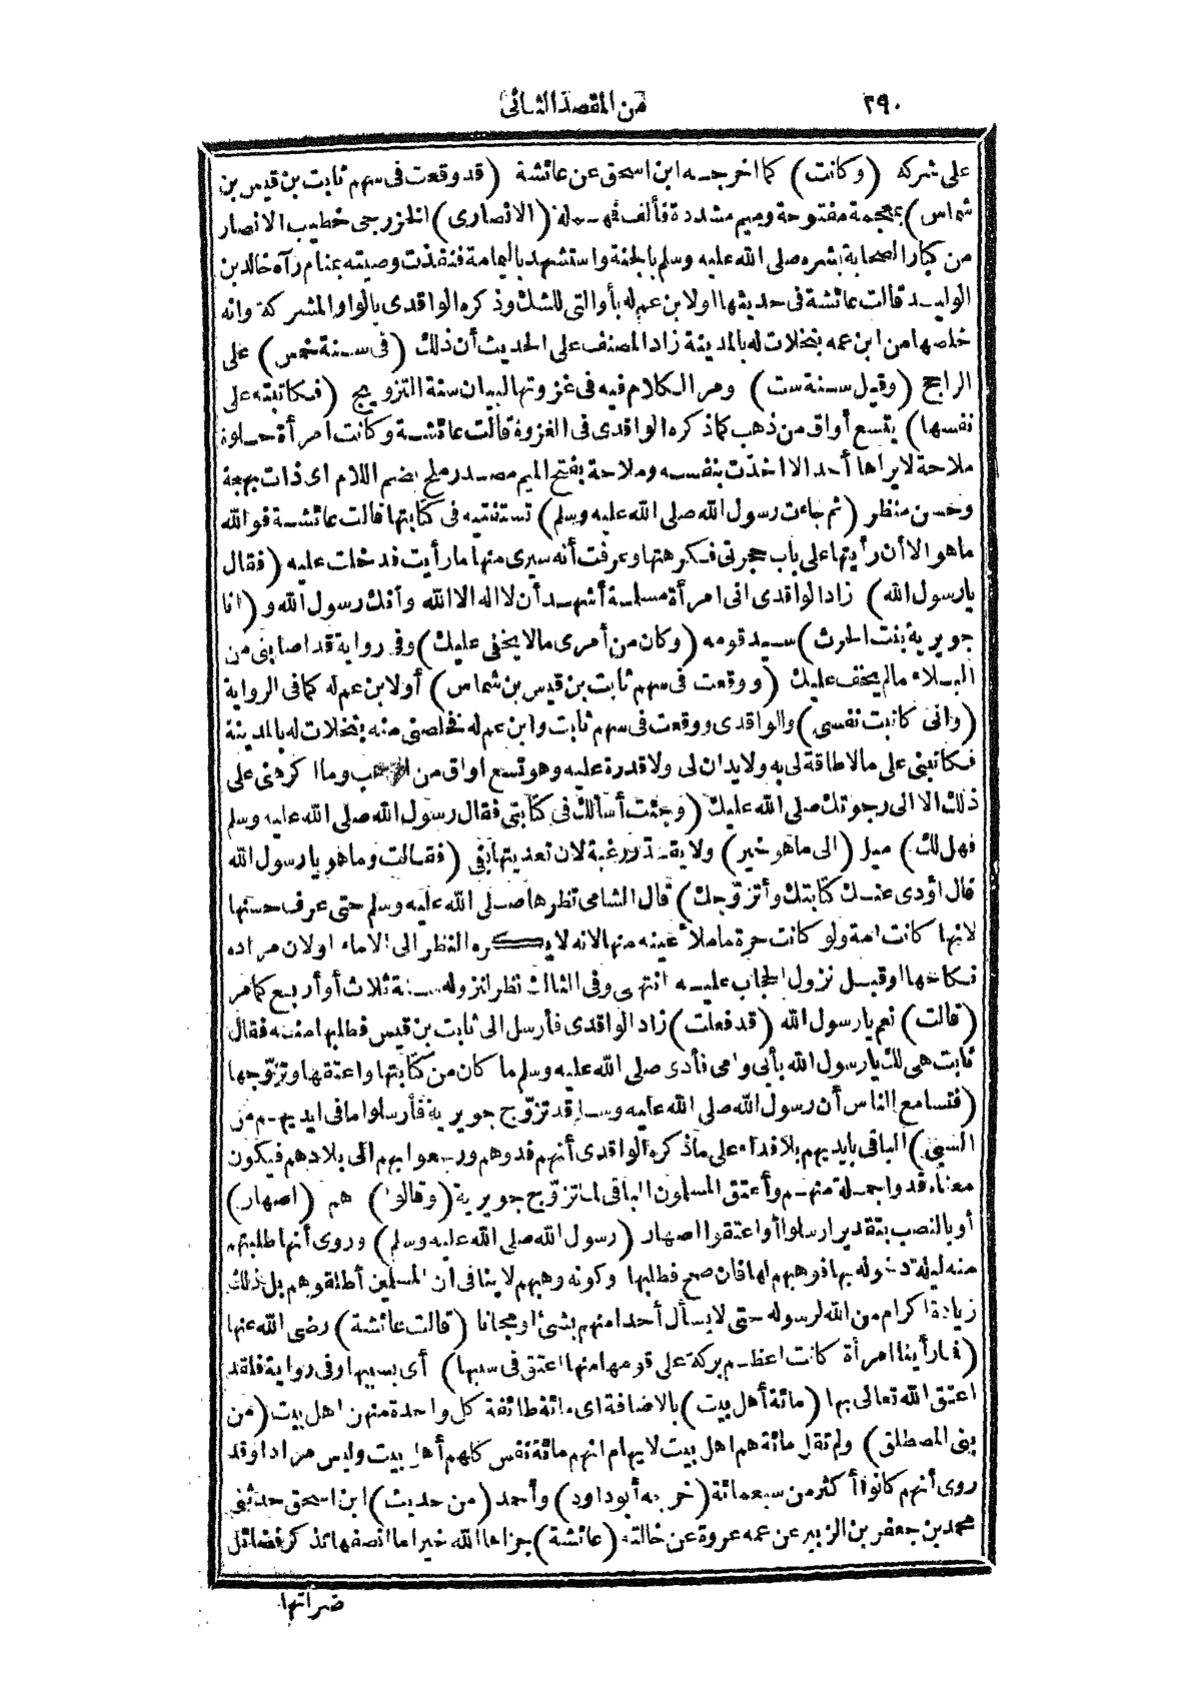 ٢٩٠
من المقصد الثانى
على شركه (وكانت) كما اخرجه ابن اسحق عن عائشة (قد وقعت فى سهم ثابت بن قيس بن
شماس) بمعجمة مفتوحة وميم مشددة فألف فمهملة (الانصارى) الخزرجى خطيب الانصار
من كبار الصحابة بشره صلى الله عليه وسلم بالجنة واستشهد باليمامة فنفذت وصيته بمنام رآه خالد بن
الوليد قالت عائشة فى حديثها اولابن عم له بأو التى للشك وذكره الواقدى بالواو المشركة وانه
خلصها من ابن عمه بنخلات له بالمدينة زاد المصنف على الحديث أن ذلك (فى سنة خمس) على
الراجح (وقيل سنة ست) ومر الكلام فيه فى غزوتها لبيان سنة التزويج (فكاتبته على
نفسها) بتسع أواق من ذهب كما ذكره الواقدى فى الغزوة قالت عائشة وكانت امرأة حلوة
ملاحة لايراها أحد الا اخذت بنفسه وملاحة بفتح الميم مصدر ملح بضم اللام اى ذات بهجة
وحسن منظر (ثم جاءت رسول الله صلى الله عليه وسلم) تستعينه فى كتابتها قالت عائشة فوالله
ماهو الا أن رأيتها على باب حجرتى فكرهتها وعرفت أنه سيرى منها ما رأيت فدخلت عليه (فقالت
يارسول الله) زاد الواقدى انى امرأة مسلمة أشهد أن لا اله الا الله وأنك رسول الله و (انا
جويرية بنت الحرث) سيد قومه (وكان من أمرى مالا يخفى عليك) وفى رواية قد اصابنى من
البلاء مالم يخف عليك (ووقعت فى سهم ثابت بن قيس بن شماس) أولابن عم له كما فى الرواية
(وانى كاتبت نفسى) والواقدى ووقعت فى سهم ثابت وابن عم له فخلصنى منه بنخلات له بالمدينة
فكاتبنى على مالا طاقة لى به ولا يدان لى ولا قدرة عليه وهو تسع اواق من الذهب وما اكرهنى على
ذلك الا انى رجوتك صلى الله عليك (وجئت أسألك فى كتابتى فقال رسول الله صلى الله عليه وسلم
فهل لك) ميل (الى ماهو خير) ولا يقدر رغبة لان تعديتها بفى (فقالت وما هو يا رسول الله
قال اؤدى عنك كتابتك وأتزوجك) قال الشامى نظرها صلى الله عليه وسلم حتى عرف حسنها
لانها كانت امة ولو كانت حرة ما ملأ عينه منها لانه لا يكره النظر الى الاماء اولان مراده
نكاحها او قبل نزول الحجاب عليه انتهى وفى الثالث نظر لنزوله سنة ثلاث أو أربع كما مر
(قالت) نعم يا رسول الله (قد فعلت) زاد الواقدى فأرسل الى ثابت بن قيس فطلبها منه فقال
ثابت هى لك يا رسول الله بأبى وامى فأدى صلى الله عليه وسلم ما كان من كتابتها واعتقها وتزوجها
(فتسامع الناس أن رسول الله صلى الله عليه وسلم قد تزوج جويرية فأرسلوا ما فى ايديهم من
السبى) الباقى بايديهم بلا فداء على ما ذكره الواقدى أنهم فدوهم ورجعوا بهم الى بلادهم فيكون
معناه فدوا جملة منهم وأعتق المسلمون الباقى لما تزوج جويرية (وقالوا) هم (اصهار)
أو بالنصب بتقدير ارسلوا أو اعتقوا اصهار (رسول الله صلى الله عليه وسلم) وروى أنها طلبتهم
منه ليلة دخوله بها فوهبهم لها فان صح فطلبها وكونه وهبهم لا ينافى ان المسلمين أطلقوهم بل ذلك
زيادة اكرام من الله لرسوله حتى لا يسأل أحدا منهم بشئ او مجانا (قالت عائشة) رضى الله عنها
(فما رأينا امرأة كانت اعظم بركة على قومها منها اعتق فى سببها) أى بسببها وفى رواية فلقد
اعتق الله تعالى بها (مائة أهل بيت) بالاضافة اى مائة طائفة كل واحدة منهن اهل بيت (من
بنى المصطلق) ولم تقل مائة هم اهل بيت لايهام انهم مائة نفس كلهم أهل بيت وليس مرادا وقد
روى أنهم كانوا أكثر من سبعمائة (خرجه أبو داود) وأحمد (من حديث) ابن اسحق حدثنى
محمد بن جعفر بن الزبير عن عمه عروة عن خالته (عائشة) جزاها الله خيرا ما انصفها تذكر فضائل
ضراتها